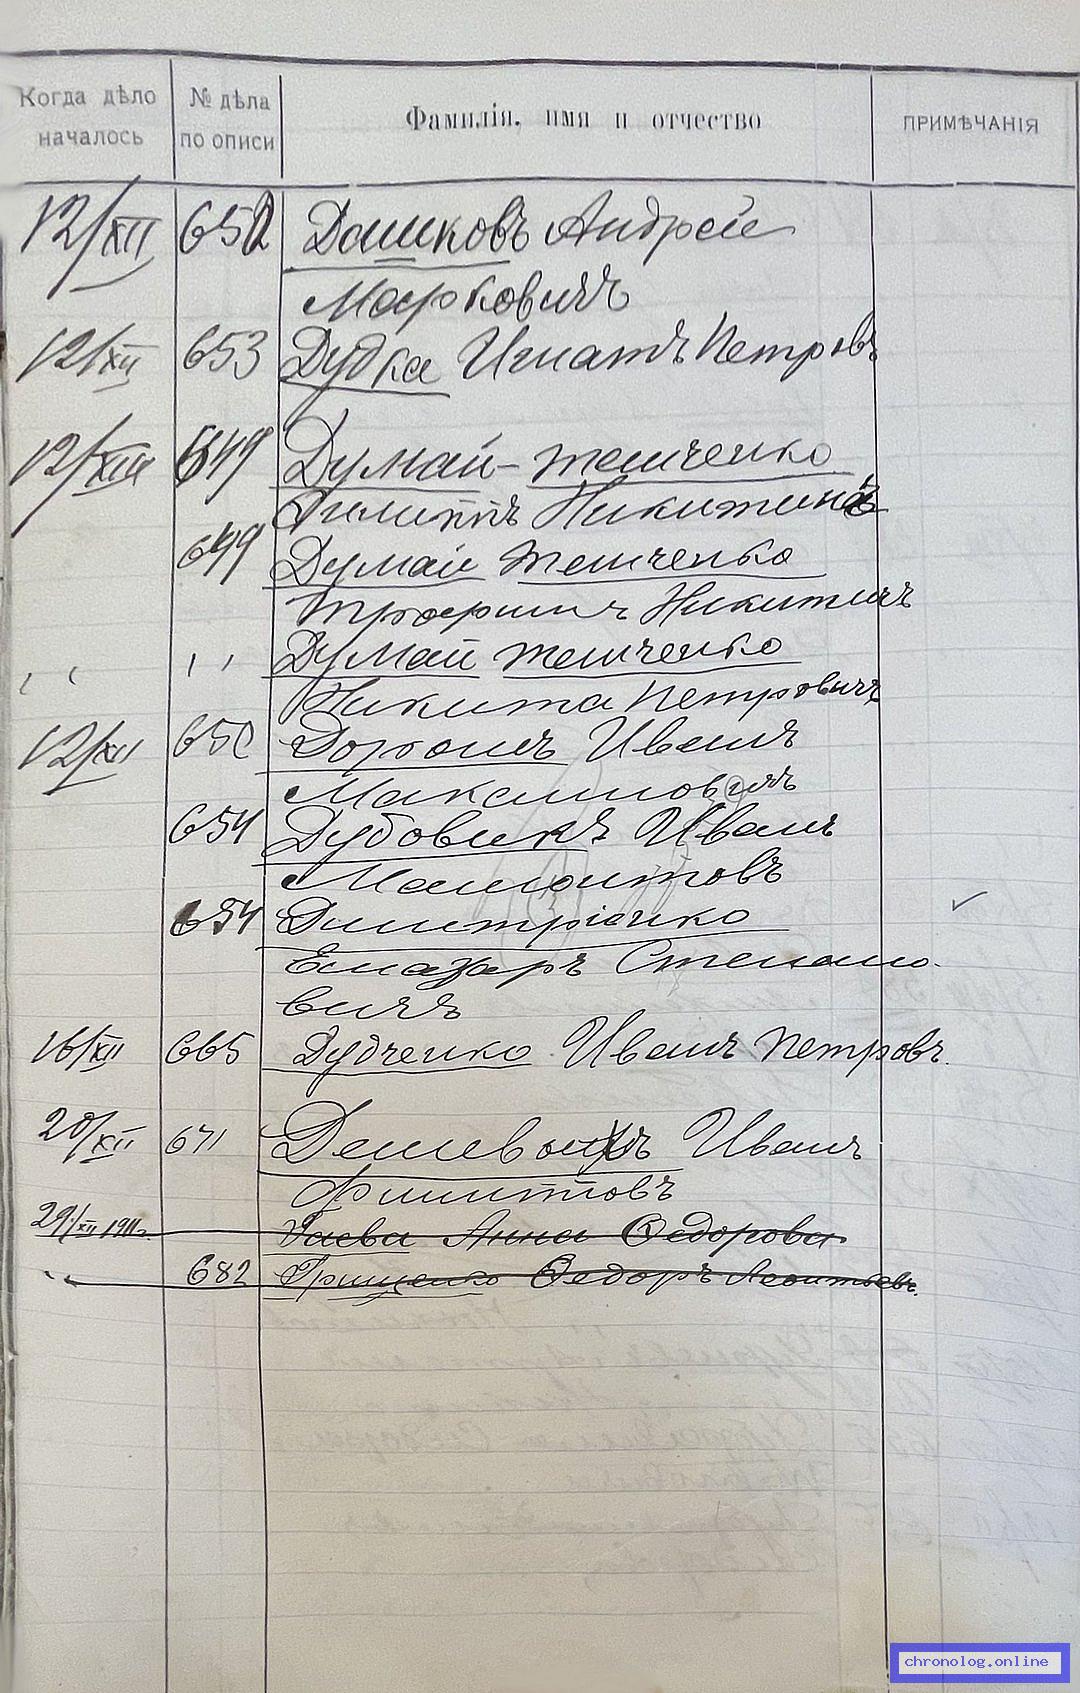 Когда дѣло началось
№ дѣла по описи
Фамилія, имя и отчество
ПРИМѢЧАНІЯ
12/XII 652 Дашковъ Андрей
Марковичъ
12/XII 653 Дудка Игнатъ Петровъ
12/XII 649 Думай-тешченко
Филиппъ Никитинъ
649 Думай тешченко
Трофимъ Никитичъ
〃 〃 Думай тешченко
Никита Петровичъ
12/XII 650 Иванъ
Максимовичъ
654 Дубовикъ Иванъ
654 Димитріенко
Елиазаръ Степано-
вичъ
16/XII 665 Дудченко Иванъ Петровъ.
20/XII 671 Иванъ
Филипповъ
29/XII 1911г. Гаева Анна Федорова
〃 682 Грищенко Федоръ Леонтьевъ.
chronolog.online